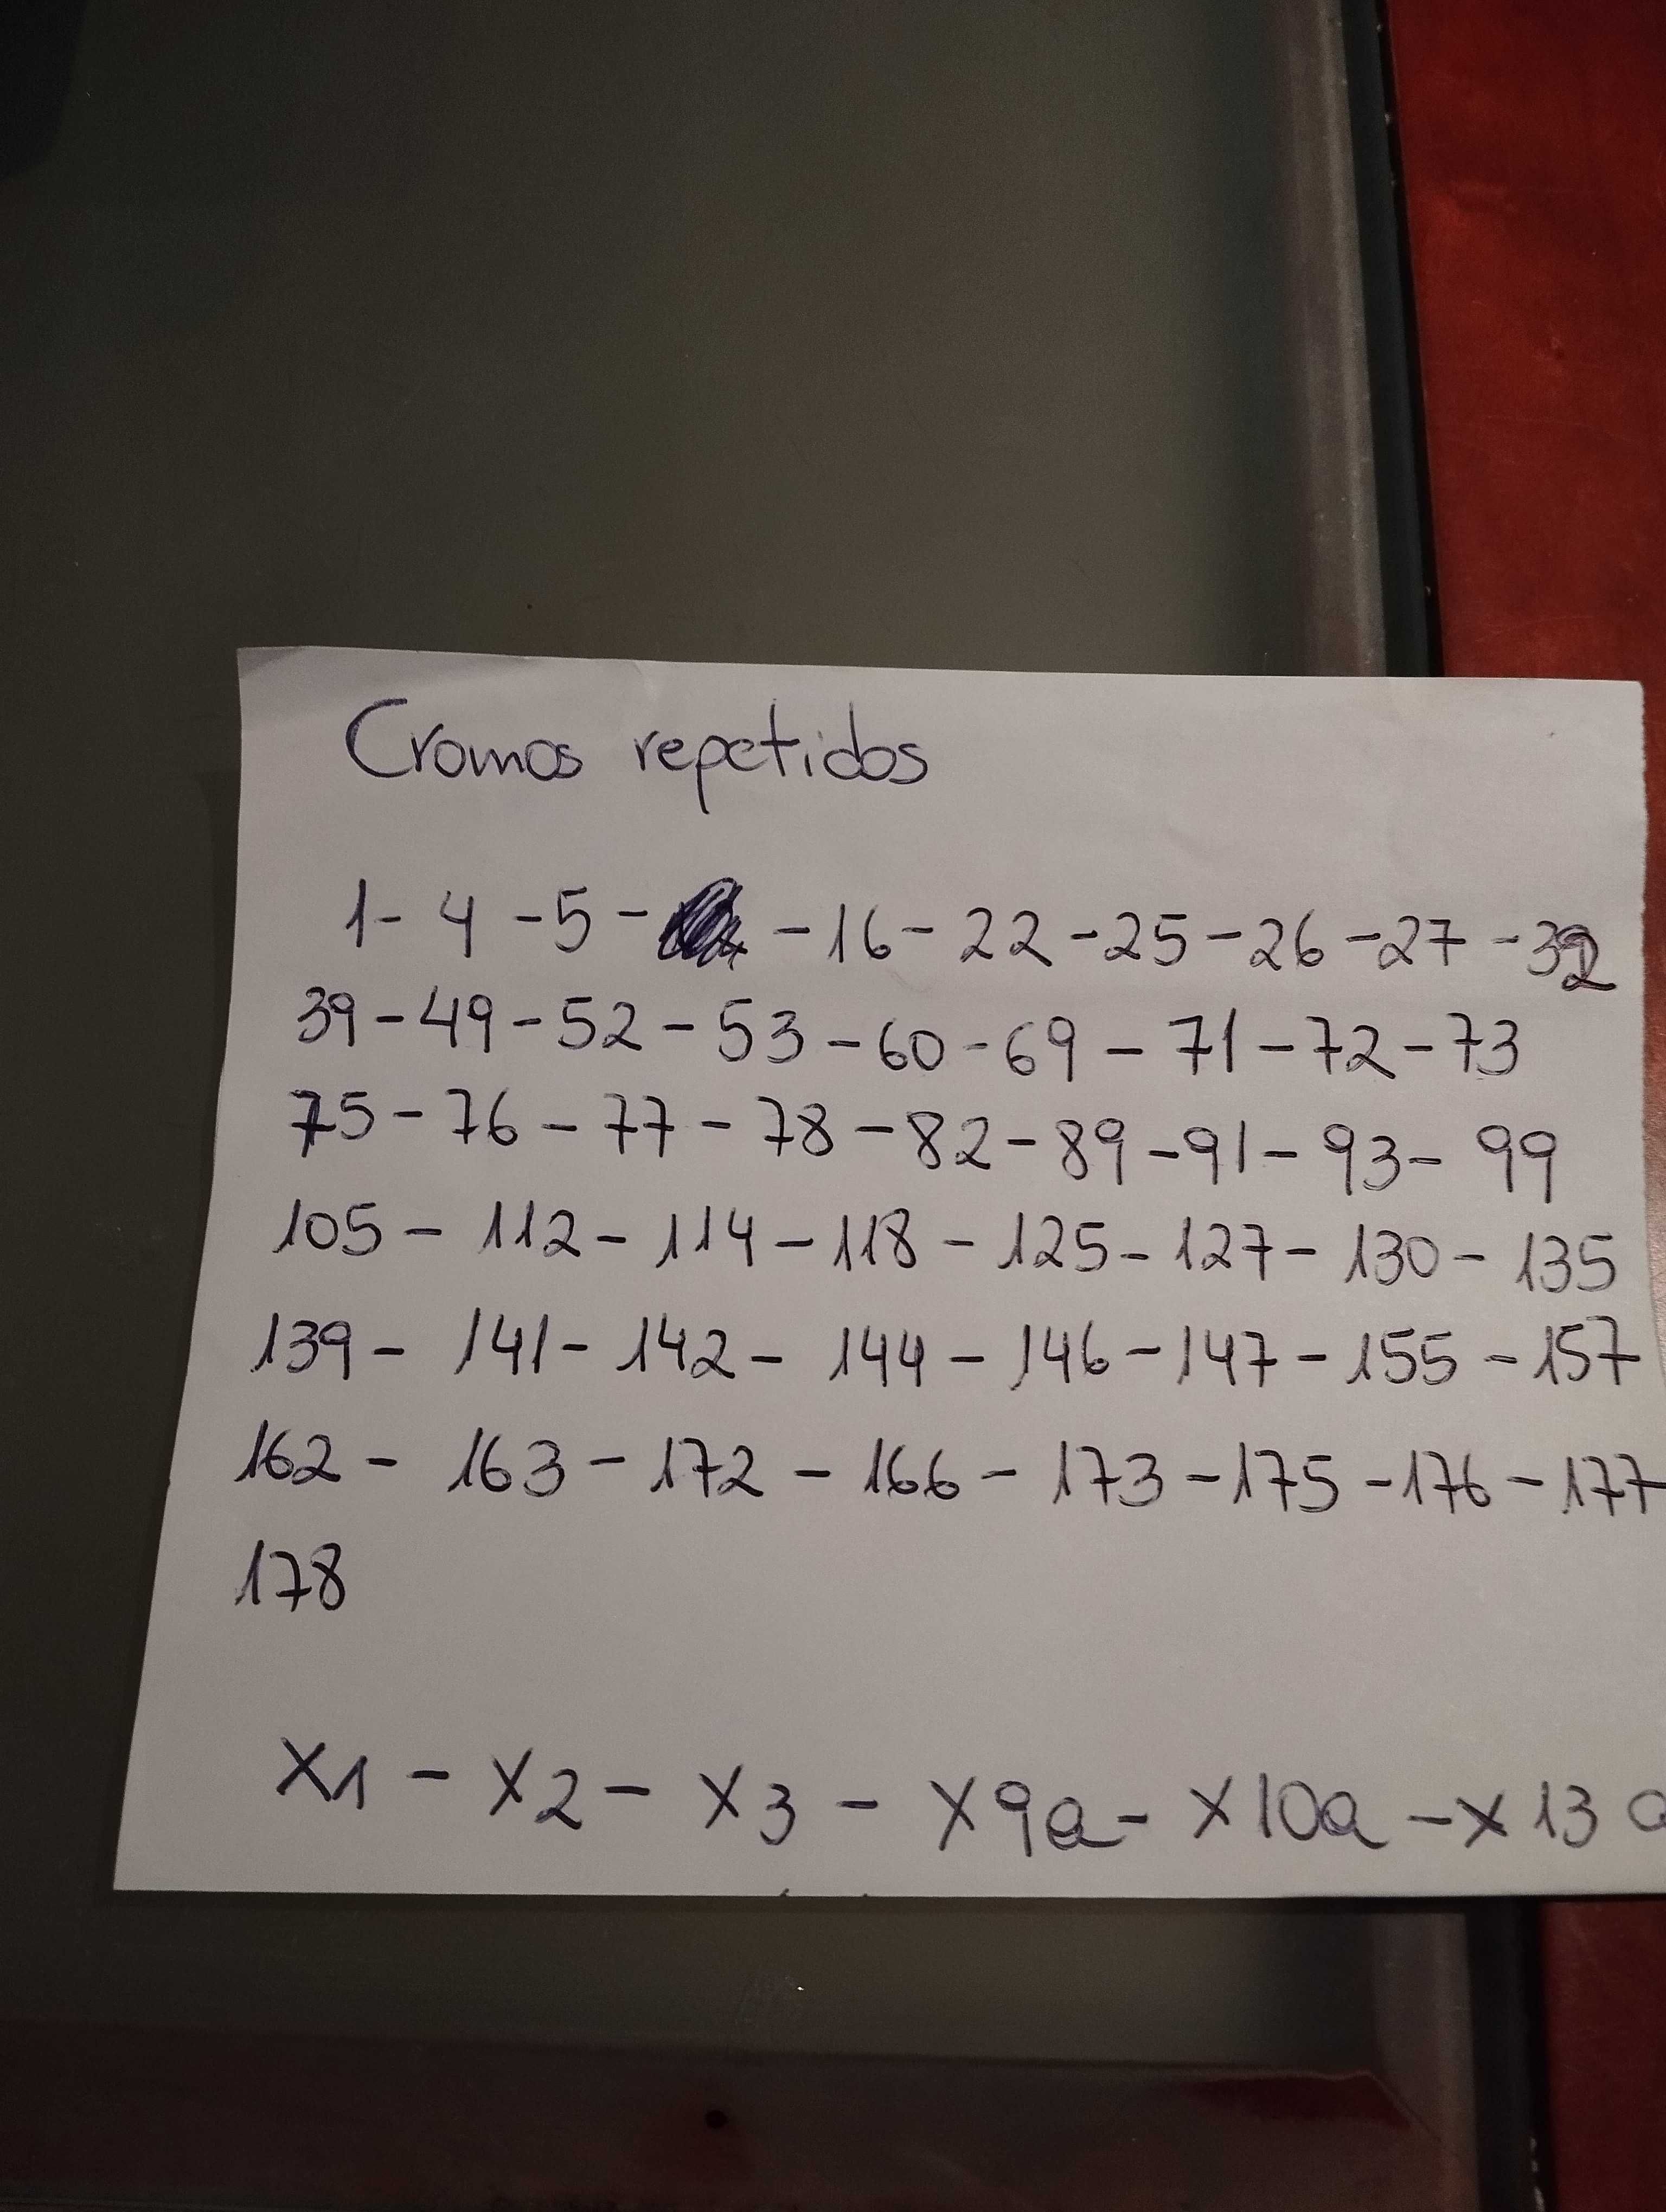 Cromos repetidos
1- 4 -5 - - 16 - 22 - 25 - 26 - 27 - 32
39 - 49 - 52 - 53 - 60 - 69 - 71 - 72 - 73
75 - 76 - 77 - 78 - 82 - 89 - 91 - 93 - 99
105 - 112 - 114 - 118 - 125 - 127 - 130 - 135
139 - 141 - 142 - 144 - 146 - 147 - 155 - 157
162 - 163 - 172 - 166 - 173 - 175 - 176 - 177
178
X1 - X2 - X3 - X9a - X10a - X13a